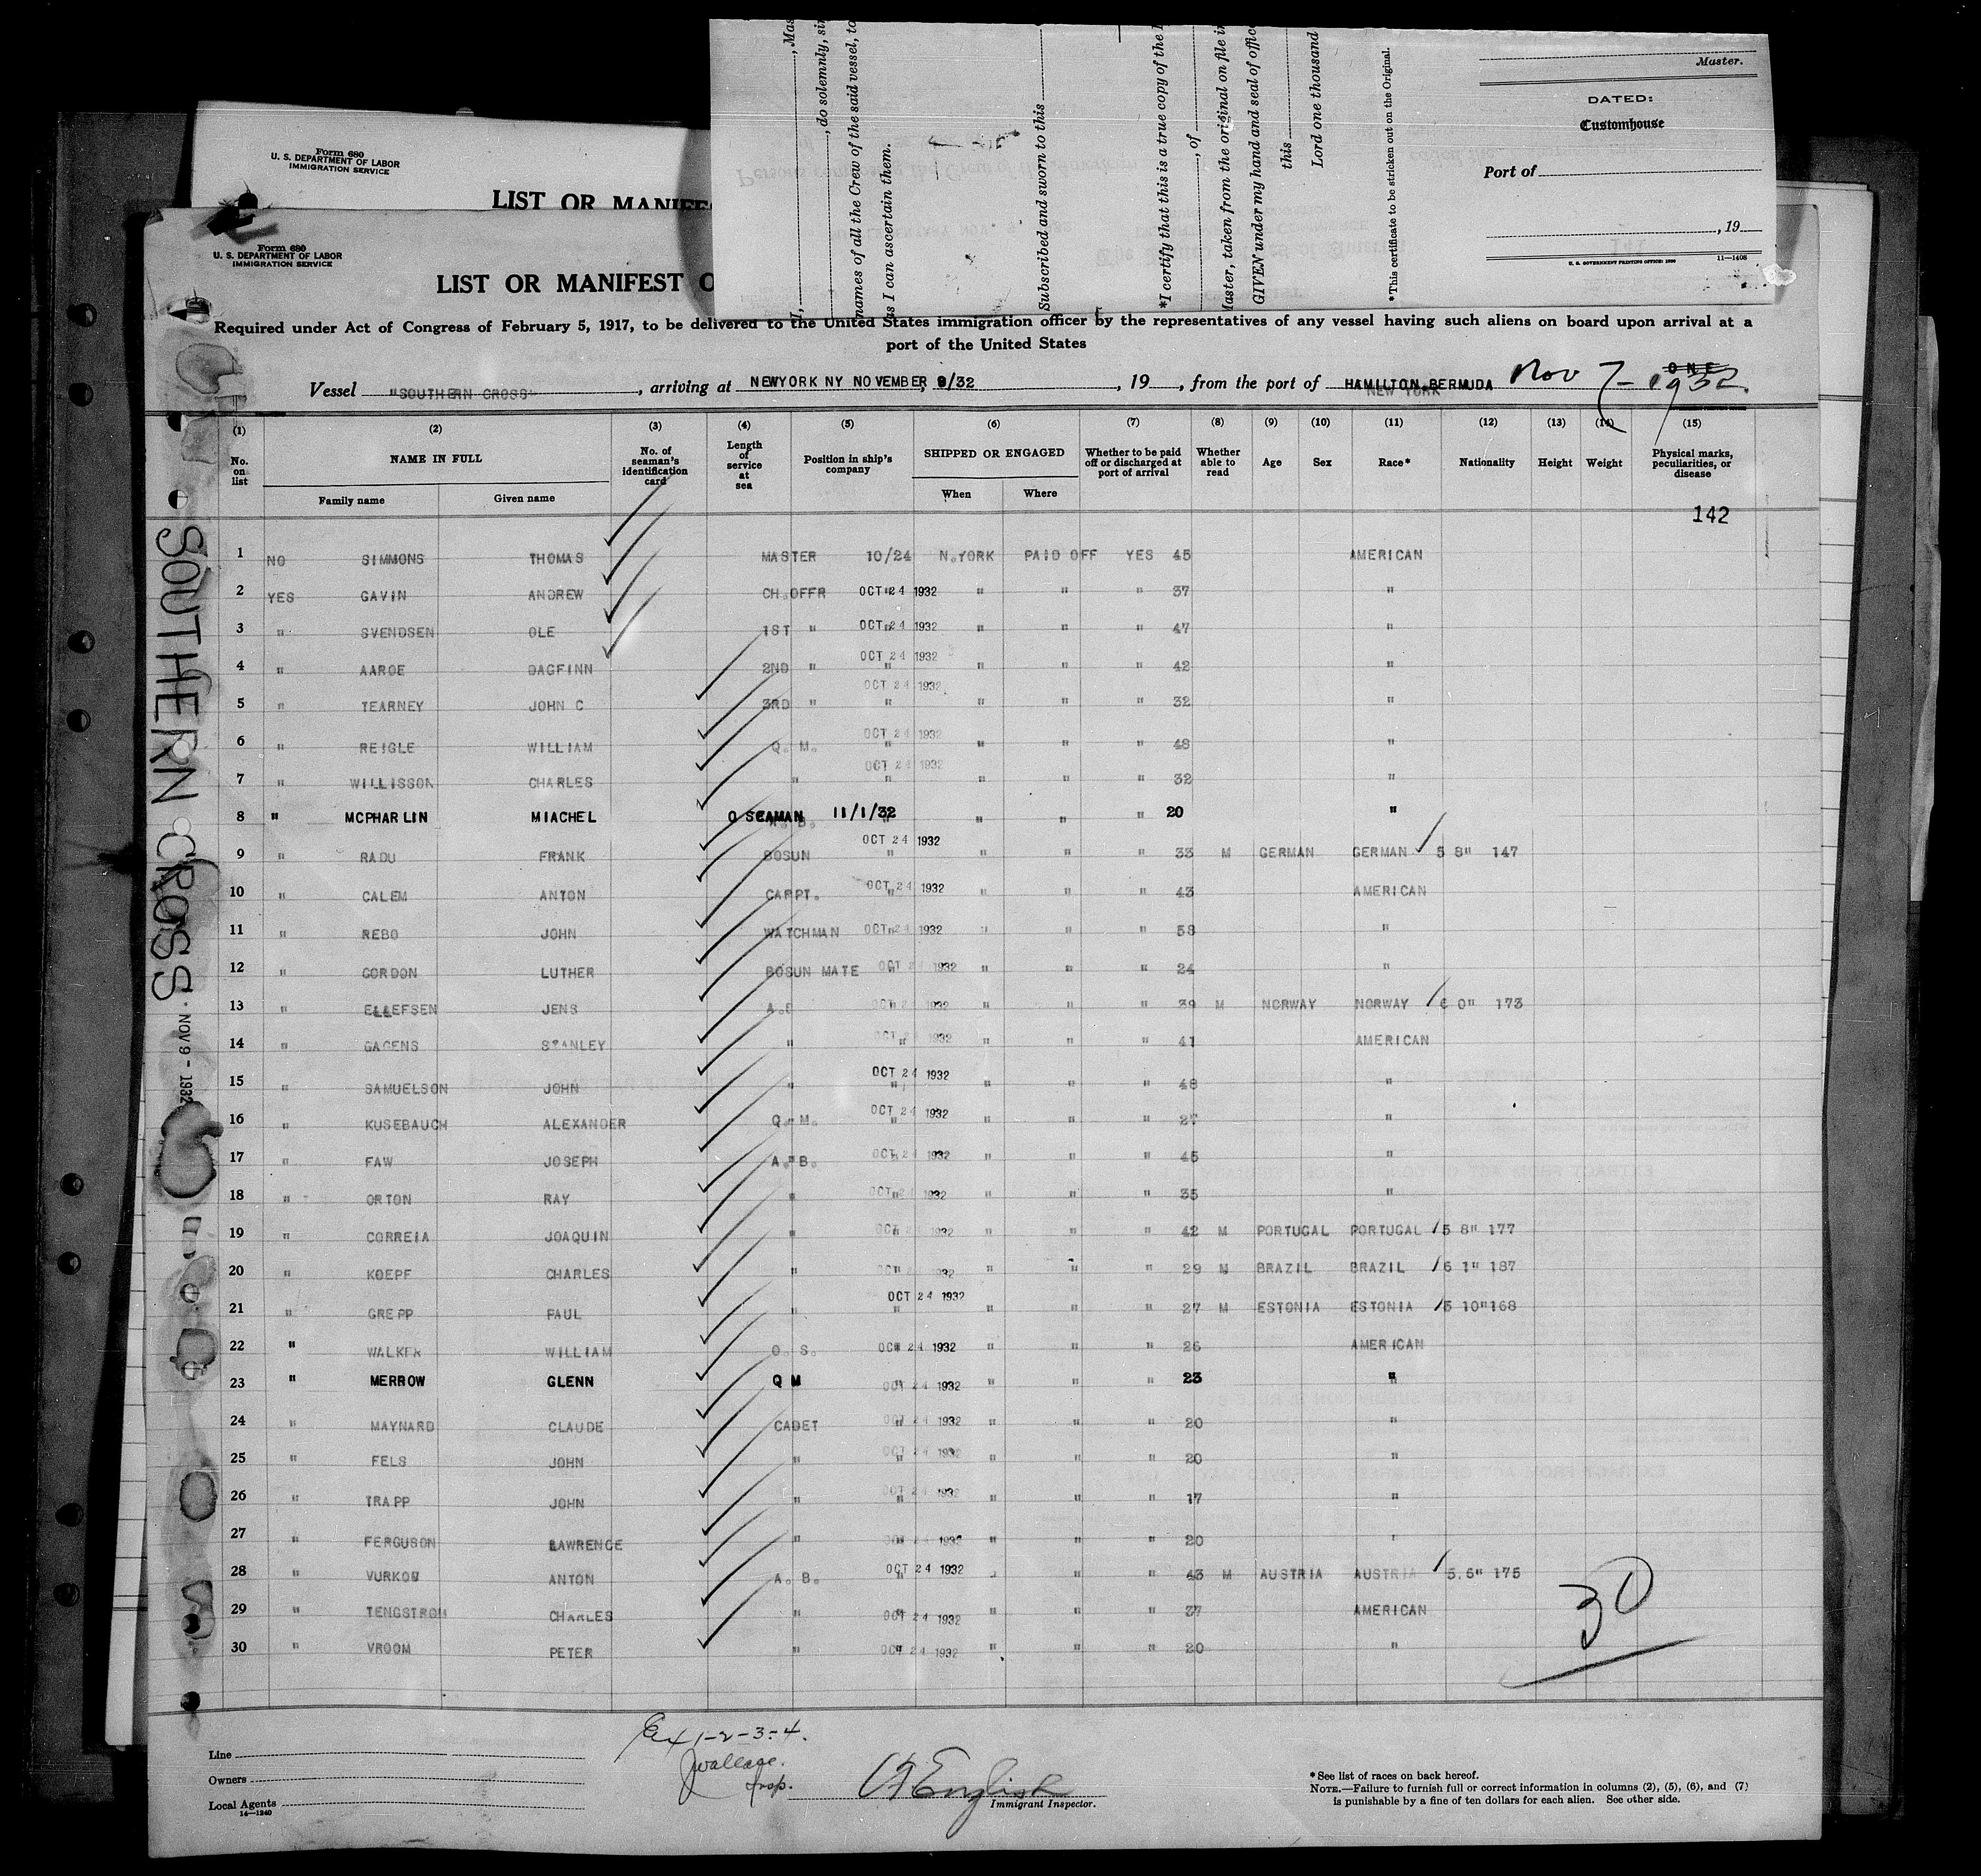 Form 680
U. S. DEPARTMENT OF LABOR
IMMIGRATION SERVICE
LIST OR MANIFES
I, , Mas
, do solemnly, sin
names of all the Crew of the said vessel, to
as I can ascertain them.
Subscribed and sworn to this
*I certify that this is a true copy of the
, of
Master, taken from the original on file in
GIVEN under my hand and seal of office
this
Lord one thousand
*This certificate to be stricken out on the Original.
Master.
DATED:
Customhouse
Port of
, 19
U. S. GOVERNMENT PRINTING OFFICE: 1930 11—1408
Form 680
U. S. DEPARTMENT OF LABOR
IMMIGRATION SERVICE
LIST OR MANIFEST O
Required under Act of Congress of February 5, 1917, to be delivered to the United States immigration officer by the representatives of any vessel having such aliens on board upon arrival at a
port of the United States
Vessel "SOUTHERN CROSS", arriving at NEWYORK NY NOVEMBER 9/32, 19 , from the port of HAMILTON BERMUDA NEW YORK Nov 7 - 1932 ONE
(1) (2) (3) (4) (5) (6) (7) (8) (9) (10) (11) (12) (13) (14) (15)
No. on list NAME IN FULL Family name Given name No. of seaman's identification card Length of service at sea Position in ship's company SHIPPED OR ENGAGED When Where Whether to be paid off or discharged at port of arrival Whether able to read Age Sex Race* Nationality Height Weight Physical marks, peculiarities, or disease
142
1 NO SIMMONS THOMAS MASTER 10/24 N.YORK PAID OFF YES 45 AMERICAN
2 YES GAVIN ANDREW CH.OFFR OCT 24 1932 " " " 37 "
3 " SVENDSEN OLE 1ST " OCT 24 1932 " " " 47 "
4 " AAROE DAGFINN 2ND " OCT 24 1932 " " " 42 "
5 " TEARNEY JOHN C 3RD " OCT 24 1932 " " " 32 "
6 " REIGLE WILLIAM Q. M. OCT 24 1932 " " " 48 "
7 " WILLISSON CHARLES " OCT 24 1932 " " " 32 "
8 " MCPHARLIN MIACHEL O SEAMAN 11/1/32 " " " 20 "
9 " RADU FRANK BOSUN OCT 24 1932 " " " 33 M GERMAN GERMAN 5 8" 147
10 " CALEM ANTON CARPT. OCT 24 1932 " " " 43 AMERICAN
11 " REBO JOHN WATCHMAN OCT 24 1932 " " " 58 "
12 " GORDON LUTHER BOSUN MATE OCT 24 1932 " " " 24 "
13 " ELLEFSEN JENS A.B OCT 24 1932 " " " 39 M NORWAY NORWAY 6 0" 173
14 " GAGENS STANLEY " OCT 24 1932 " " " 41 AMERICAN
15 " SAMUELSON JOHN " OCT 24 1932 " " " 48 "
16 " KUSEBAUCH ALEXANDER Q. M. OCT 24 1932 " " " 27 "
17 " FAW JOSEPH A. B. OCT 24 1932 " " " 45 "
18 " ORTON RAY " OCT 24 1932 " " " 35 "
19 " CORREIA JOAQUIN " OCT 24 1932 " " " 42 M PORTUGAL PORTUGAL 5 8" 177
20 " KOEPF CHARLES " OCT 24 1932 " " " 29 M BRAZIL BRAZIL 6 1" 187
21 " GREPP PAUL " OCT 24 1932 " " " 27 M ESTONIA ESTONIA 5 10" 168
22 " WALKER WILLIAM O. S. OCT 24 1932 " " " 26 AMERICAN
23 " MERROW GLENN Q M OCT 24 1932 " " " 23 "
24 " MAYNARD CLAUDE CADET OCT 24 1932 " " " 20 "
25 " FELS JOHN " OCT 24 1932 " " " 20 "
26 " TRAPP JOHN " OCT 24 1932 " " " 17 "
27 " FERGUSON LAWRENCE " OCT 24 1932 " " " 20 "
28 " VURKOW ANTON A. B. OCT 24 1932 " " " 43 M AUSTRIA AUSTRIA 5.6" 175
29 " TENGSTROM CHARLES " OCT 24 1932 " " " 37 AMERICAN
30 " VROOM PETER " OCT 24 1932 " " " 20 "
30
SOUTHERN CROSS
NOV 9 - 1932
Ex 1-2-3-4.
J Wallace.
Insp.
Line
Owners
Local Agents
14—1240
English
Immigrant Inspector.
*See list of races on back hereof.
NOTE.—Failure to furnish full or correct information in columns (2), (5), (6), and (7)
is punishable by a fine of ten dollars for each alien. See other side.